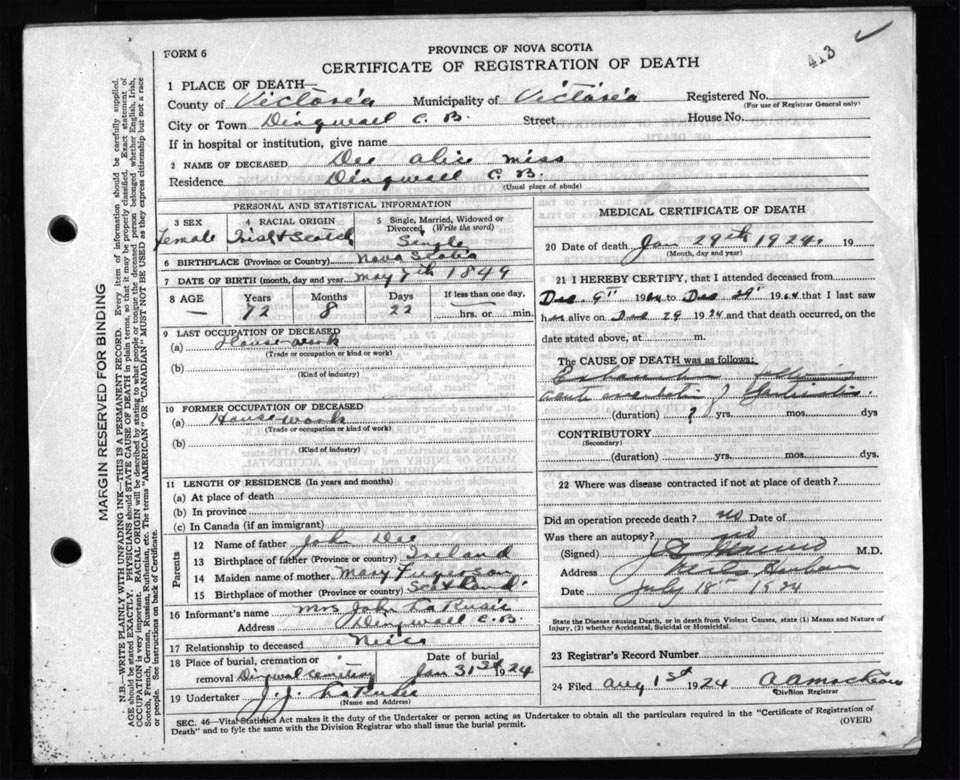 413
FORM 6
PROVINCE OF NOVA SCOTIA
CERTIFICATE OF REGISTRATION OF DEATH
1 PLACE OF DEATH—
County of Victoria Municipality of Victoria Registered No.
(For use of Registrar General only)
City or Town Dingwall C. B. Street House No.
If in hospital or institution, give name
2 NAME OF DECEASED Dee Alice Miss
Residence Dingwall C. B.
(Usual place of abode)
PERSONAL AND STATISTICAL INFORMATION
3 SEX 4 RACIAL ORIGIN 5 Single, Married, Widowed or Divorced (Write the word)
Female Irish & Scotch Single
6 BIRTHPLACE (Province or Country) Nova Scotia
7 DATE OF BIRTH (month, day and year) May 7th 1849
8 AGE Years Months Days If less than one day,
— 72 8 22 hrs. or min.
9 LAST OCCUPATION OF DECEASED
(a) House work
(Trade or occupation or kind or work)
(b)
(Kind of industry)
10 FORMER OCCUPATION OF DECEASED
(a) House work
(Trade or occupation or kind or work)
(b)
(Kind of industry)
11 LENGTH OF RESIDENCE (In years and months)
(a) At place of death
(b) In province
(c) In Canada (if an immigrant)
Parents
12 Name of father John Dee
13 Birthplace of father (Province or country) Ireland
14 Maiden name of mother Mary Furgerson
15 Birthplace of mother (Province or country) Scotland
16 Informant's name Mrs John LaRusic
Address Dingwall C. B.
17 Relationship to deceased Niece
18 Place of burial, cremation or Date of burial
removal Dingwal cemetary Jan 31st 1924
19 Undertaker J. J. LaRusic
(Name and Address)
MEDICAL CERTIFICATE OF DEATH
20 Date of death Jan 29th 1924 19
(Month, day and year)
21 I HEREBY CERTIFY, that I attended deceased from
Dec 9th to Dec that I last saw
her alive on Dec 29 1924 and that death occurred, on
date stated above, at m.
The CAUSE OF DEATH was as follows:
Exhaustion following
acute of
(duration) ? yrs. mos. dys
CONTRIBUTORY
(Secondary)
(duration) yrs. mos. dys.
22 Where was disease contracted if not at place of death?
Did an operation precede death? no Date of
Was there an autopsy? no
(Signed) M.D.
Address Neils Harbour
Date July 18th 1924
State the Disease causing Death, or in death from Violent Causes, state (1) Means and Nature of
Injury, (2) whether Accidental, Suicidal or Homicidal.
23 Registrar's Record Number
24 Filed Aug 1st 1924
Division Registrar
SEC. 46—Vital Statistics Act makes it the duty of the Undertaker or person acting as Undertaker to obtain all the particulars required in the "Certificate of Registration of
Death" and to fyle the same with the Division Registrar who shall issue the burial permit. (OVER)
MARGIN RESERVED FOR BINDING
N.B.—WRITE PLAINLY WITH UNFADING INK—THIS IS A PERMANENT RECORD. Every item of information should be carefully supplied.
AGE should be stated EXACTLY. PHYSICIANS should STATE CAUSE OF DEATH in plain terms, so that it may be properly classified. Exact statement of
OCCUPATION is very important. RACIAL ORIGIN will be described by stating to what people or tongue the deceased person belonged whether English, Irish,
Scotch, French, German, Russian, Ruthenian, etc. The terms "AMERICAN" or "CANADIAN" MUST NOT BE USED as they express citizenship but not a race
or people. See instructions on back of Certificate.